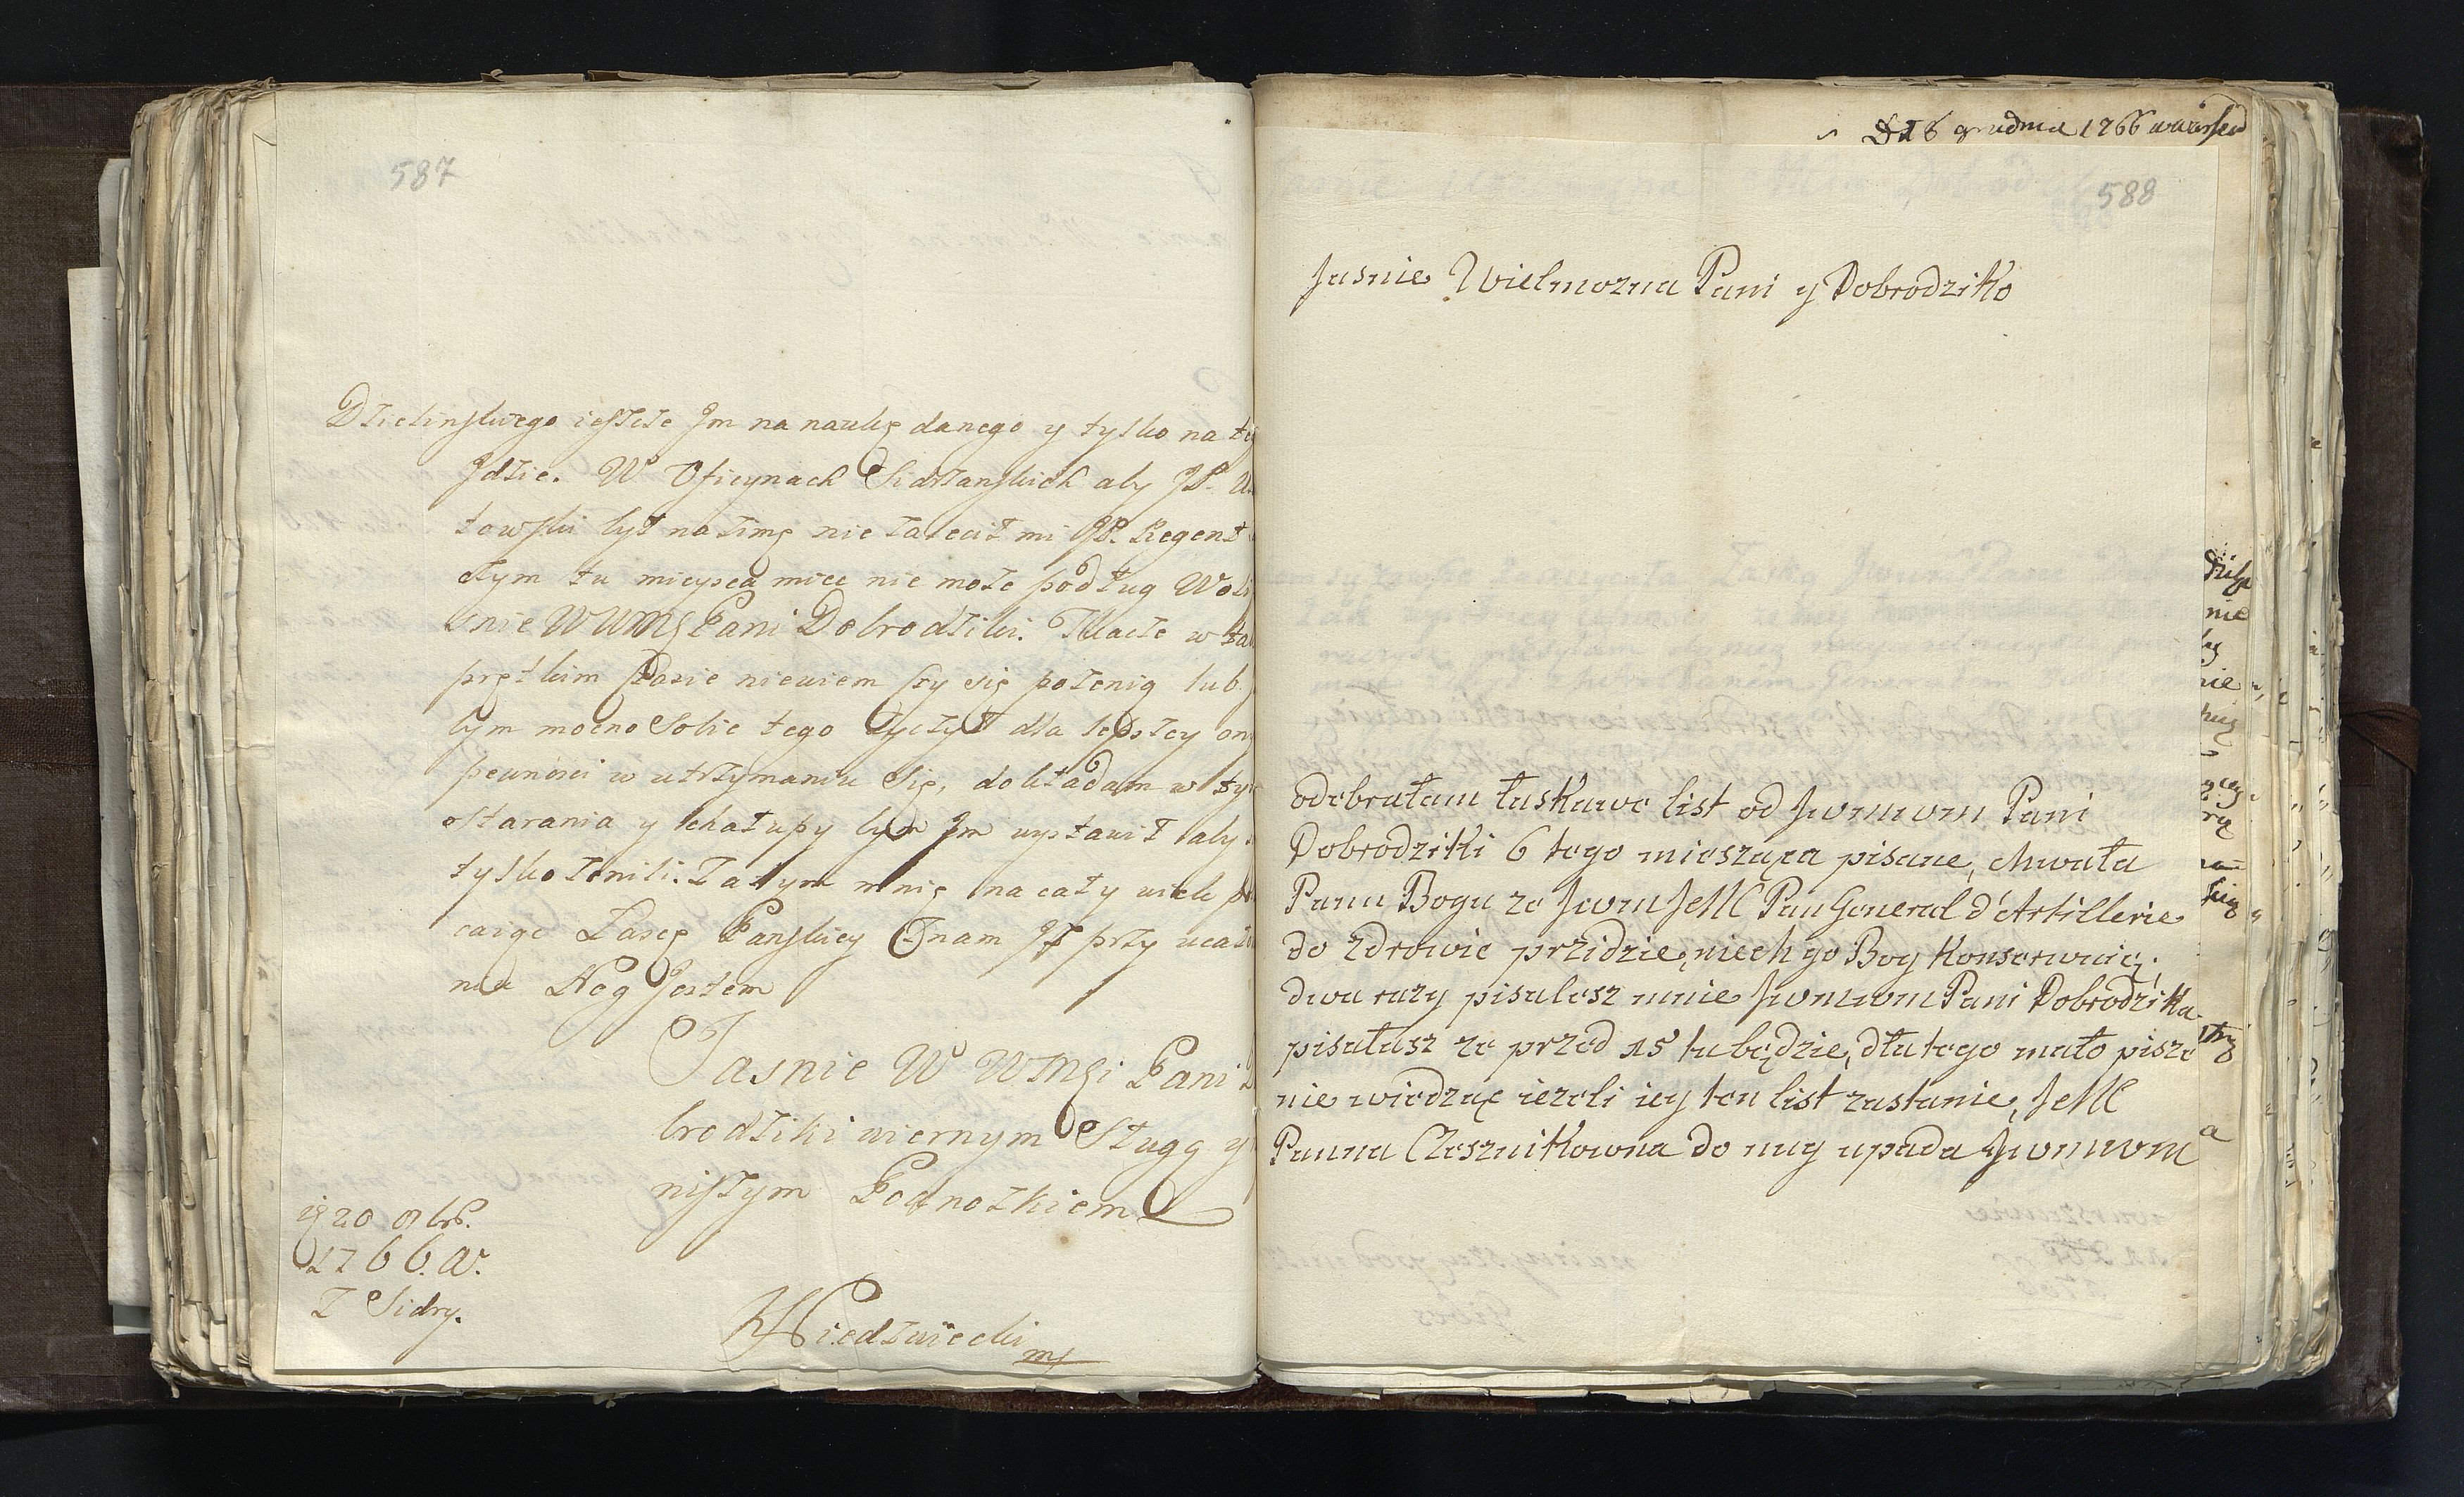 587
Dzielinskiego ieszcze Jm na naukę danego y tylko na tę
Jdzie. W Oficynach Sidrzanskich aby JP.
towski był na zimę nie zalecił mi JP. Regent
czym tu mieysca miec nie moze podług Woli
snie W WMG Pani Dobrodziki. Tkacze w ta
prętkim czasie niewiem czy się pozenią lub
bym mocno Sobie tego zyczył dla lepszey
pewnosci w utrzymaniu Się, dokładam w tym
starania y chałupy bym Jm wystawił aby
tylko zenili. Zatym mnię na cały wiek
caiąc Łasce Panskiey Onam JŻ przy ucało
niu Nog Jestem
Jasnie W WMGi Pani
brodziki wiernym Sługą y
niszym Podnozkiem
20 8br.
1766. a.
Z Sidry.
HNiedzwiecki
mp
D 16 grudnia 1766 wwarszaw
588
Jasnie Wielmozna Pani y Dobrodziko
odebrałam łaskawe list od Jwmwm Pani
Dobrodziki 6 tego miesząca pisane, chwała
Panu Bogu ze Jwm JeMC Pan General d'Artillerie
do zdrowie przidzie, niech go Bog Konserwuię;
dwa razy pisalesz mnie Jwmwm Pani Dobrodzika
pisałasz ze przed 15 tu będzie, dla tego mało pisze
nie wiedząc iezeli iey ten list zastanie, JeMC
Panna Czesznikowna do nug upada Jwmwm